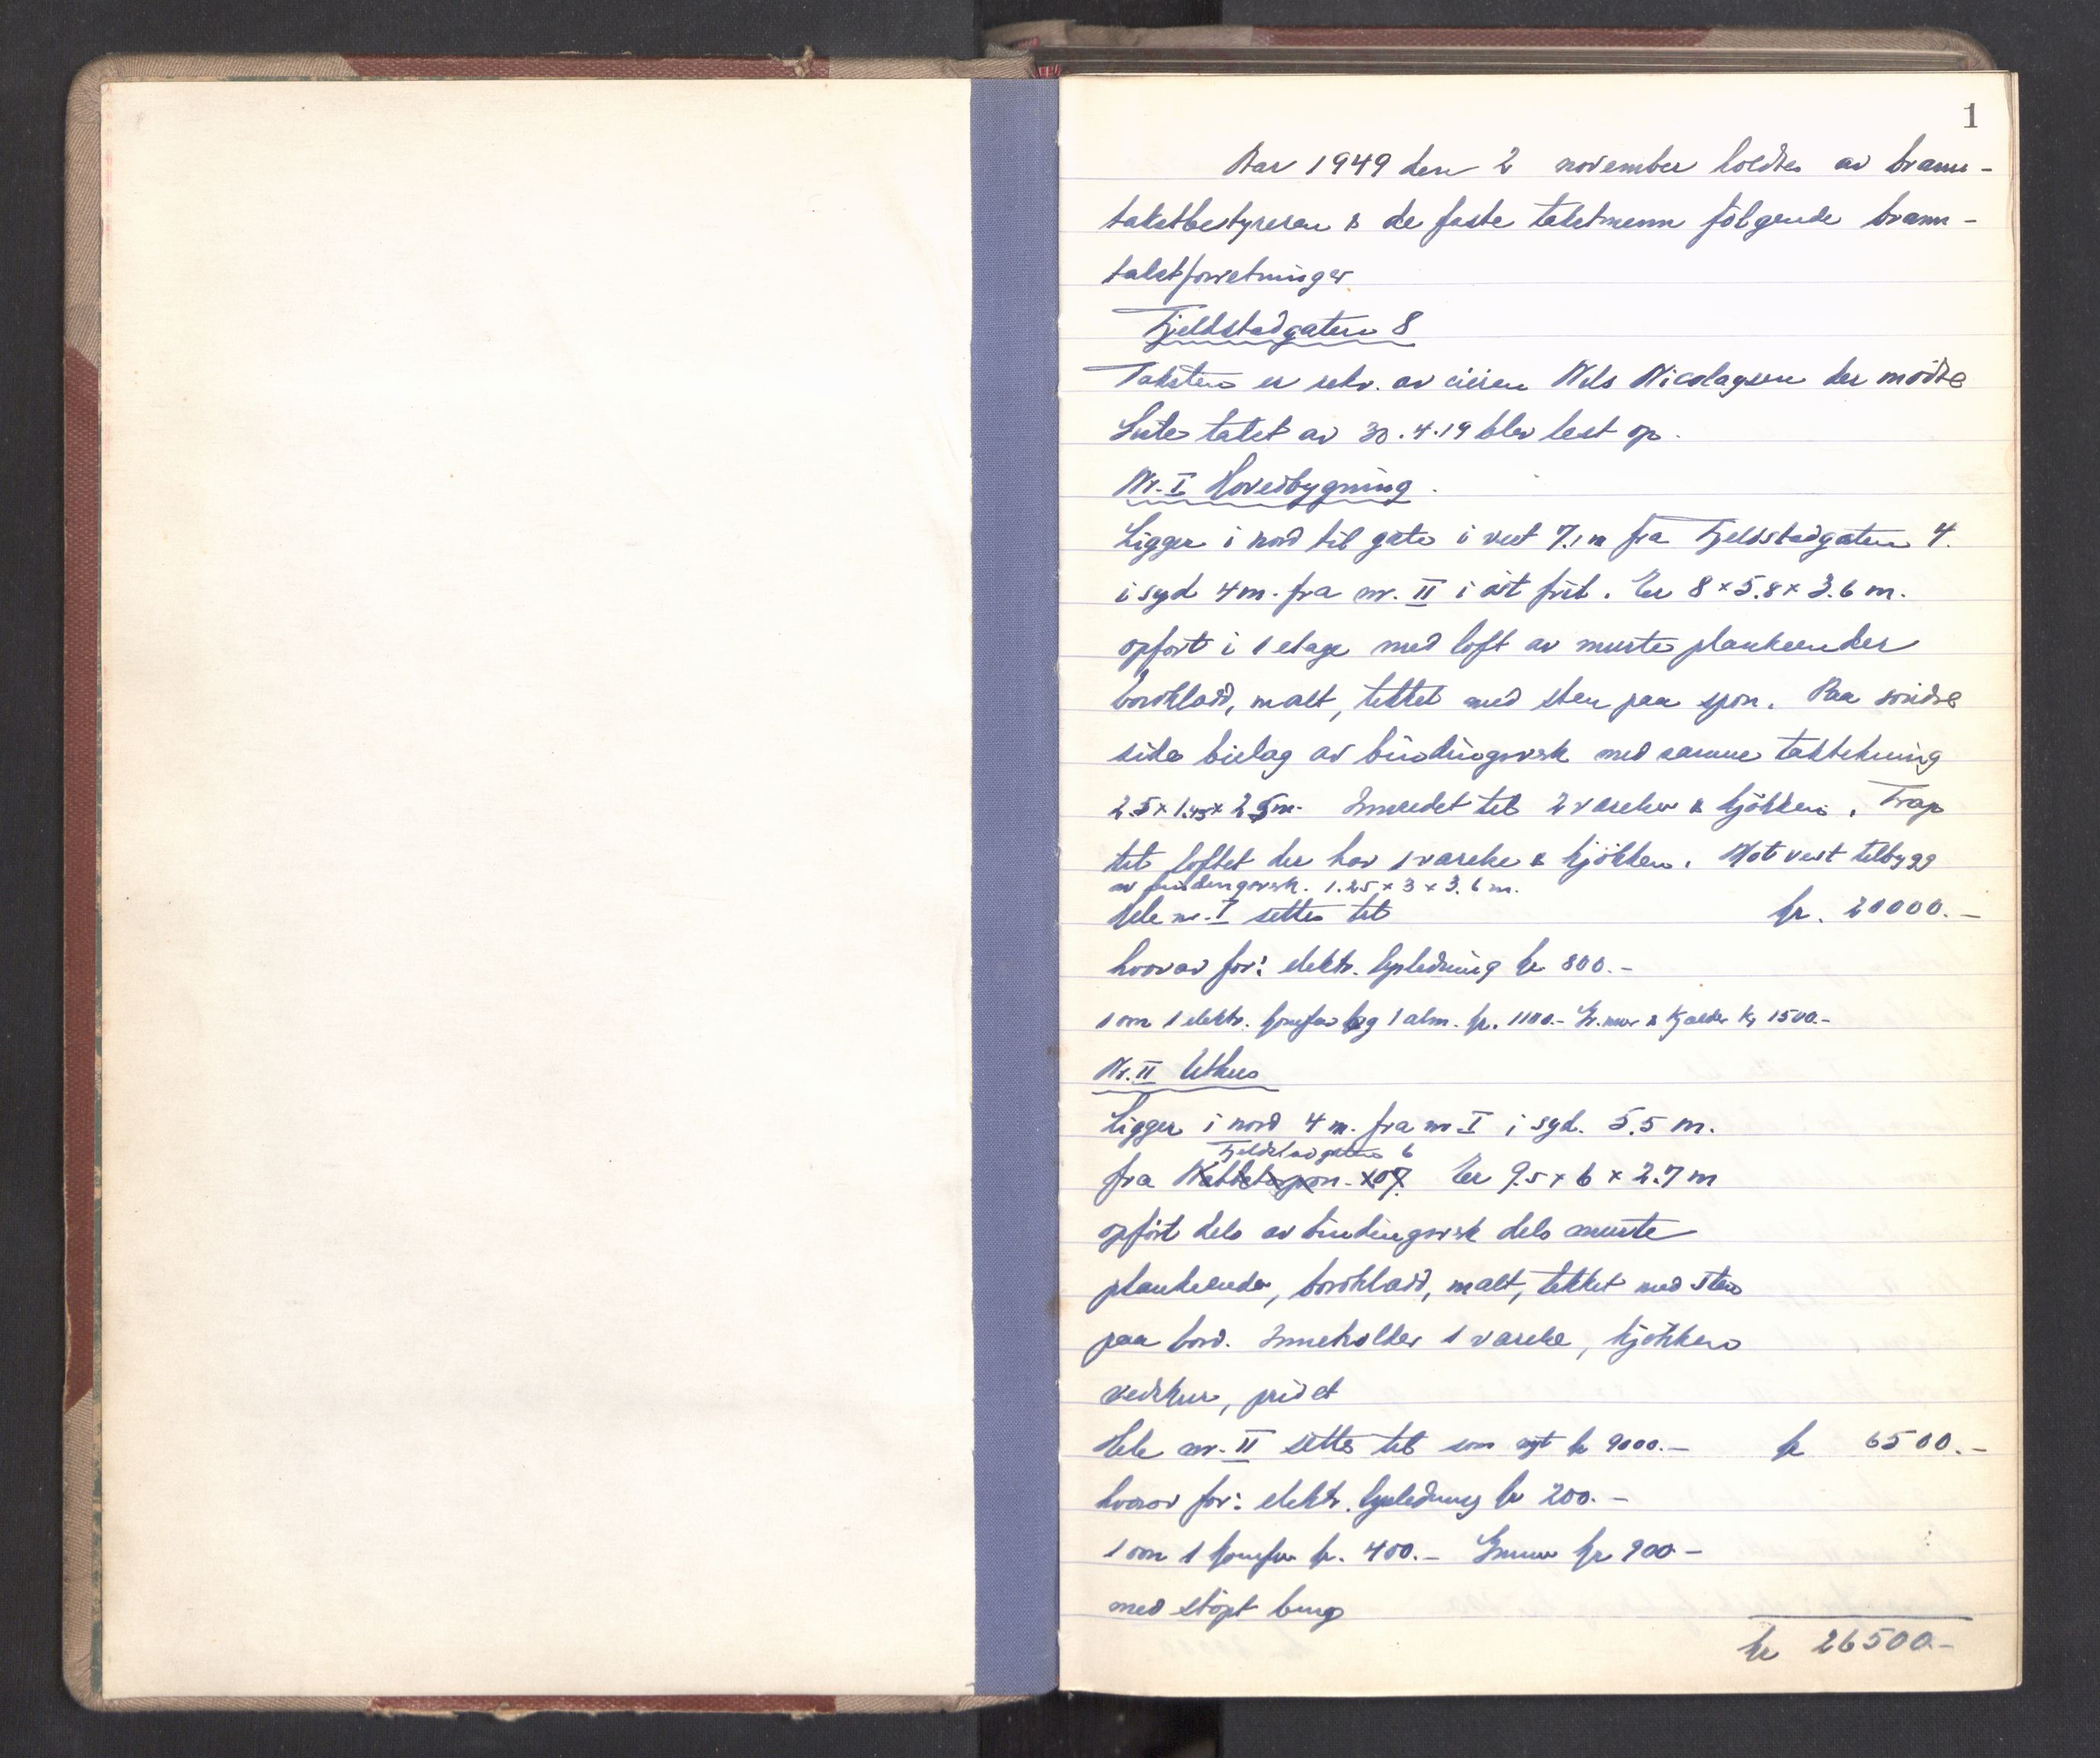 1
Aar 1949 den 2 november holdtes av brann-
takstbestyreren & de faste takstmenn følgende brann-
takstforretninger
Fjeldstadgaten 8
Taksten er rekv. av eieren Nils Nicolaysen der mødte
Siste takst av 30.4.19 blev lest op.
Nr. I Hovedbygning.
Ligger i nord til gate i vest 7.1 m fra Fjeldstadgaten 4.
i syd 4 m. fra nr. II i øst frit. Er 8 x 5.8 x 3.6 m.
opført i 1 etage med loft av murte plankeender
bordklædd, malt, tekket med sten paa spon. Paa søndre
side bislag av bindingsverk med samme taktekning
2.5 x 1.45 x 2.5 m. Innredet til 2 værelser & kjøkken. Trap
til loftet der har 1 værelse & kjøkken. Mot vest tilbygg
av bindingsverk. 1.25 x 3 x 3.6 m.
Hele nr. I settes til kr. 20000.-
hvorav for: elektr. lysledning kr 800.-
1 ovn 1 elektr. komfyr og 1 alm. kr. 1100.- Gr.mur & kjælder kr 1500.-
Nr. II Uthus
Ligger i nord 4 m. fra nr I i syd. 5.5 m.
Fjeldstadgaten 6
fra Er 9.5 x 6 x 2.7 m
opført dels av bindingsverk dels murte
plankeender, bordklædd, malt, tekket med sten
paa bord. Inneholder 1 værelse, kjøkken
vedskur, privet
Hele nr. II settes til som nyt kr 9000.- kr 6500.-
hvorav for: elektr. lysledning kr 200.-
1 ovn 1 komfyr kr. 400.- Grmur kr 900.-
med støpt
kr 26500.-